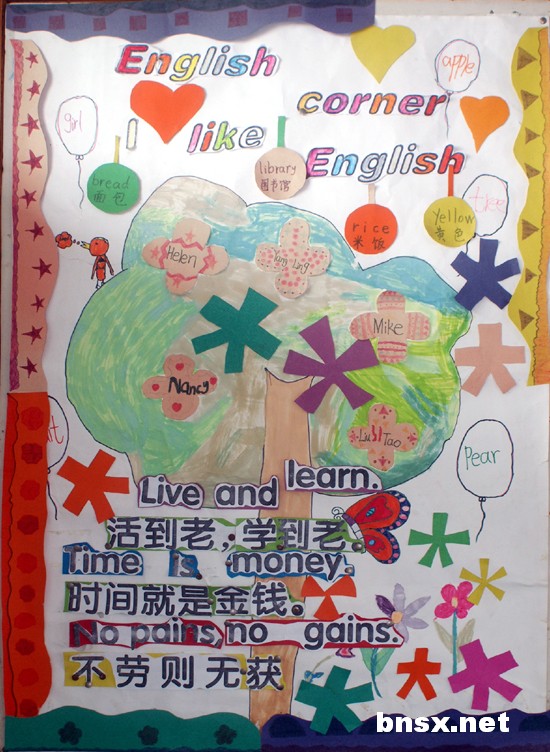 English
corner
apple
girl
I like
English
bread
面包
library
图书馆
rice
米饭
yellow
黄色
tree
Helen
Mike
Nancy
Tao
Pear
Live and learn.
活到老，学到老。
Time is money.
时间就是金钱。
No pains, no gains.
不劳则无获
bnsx.net